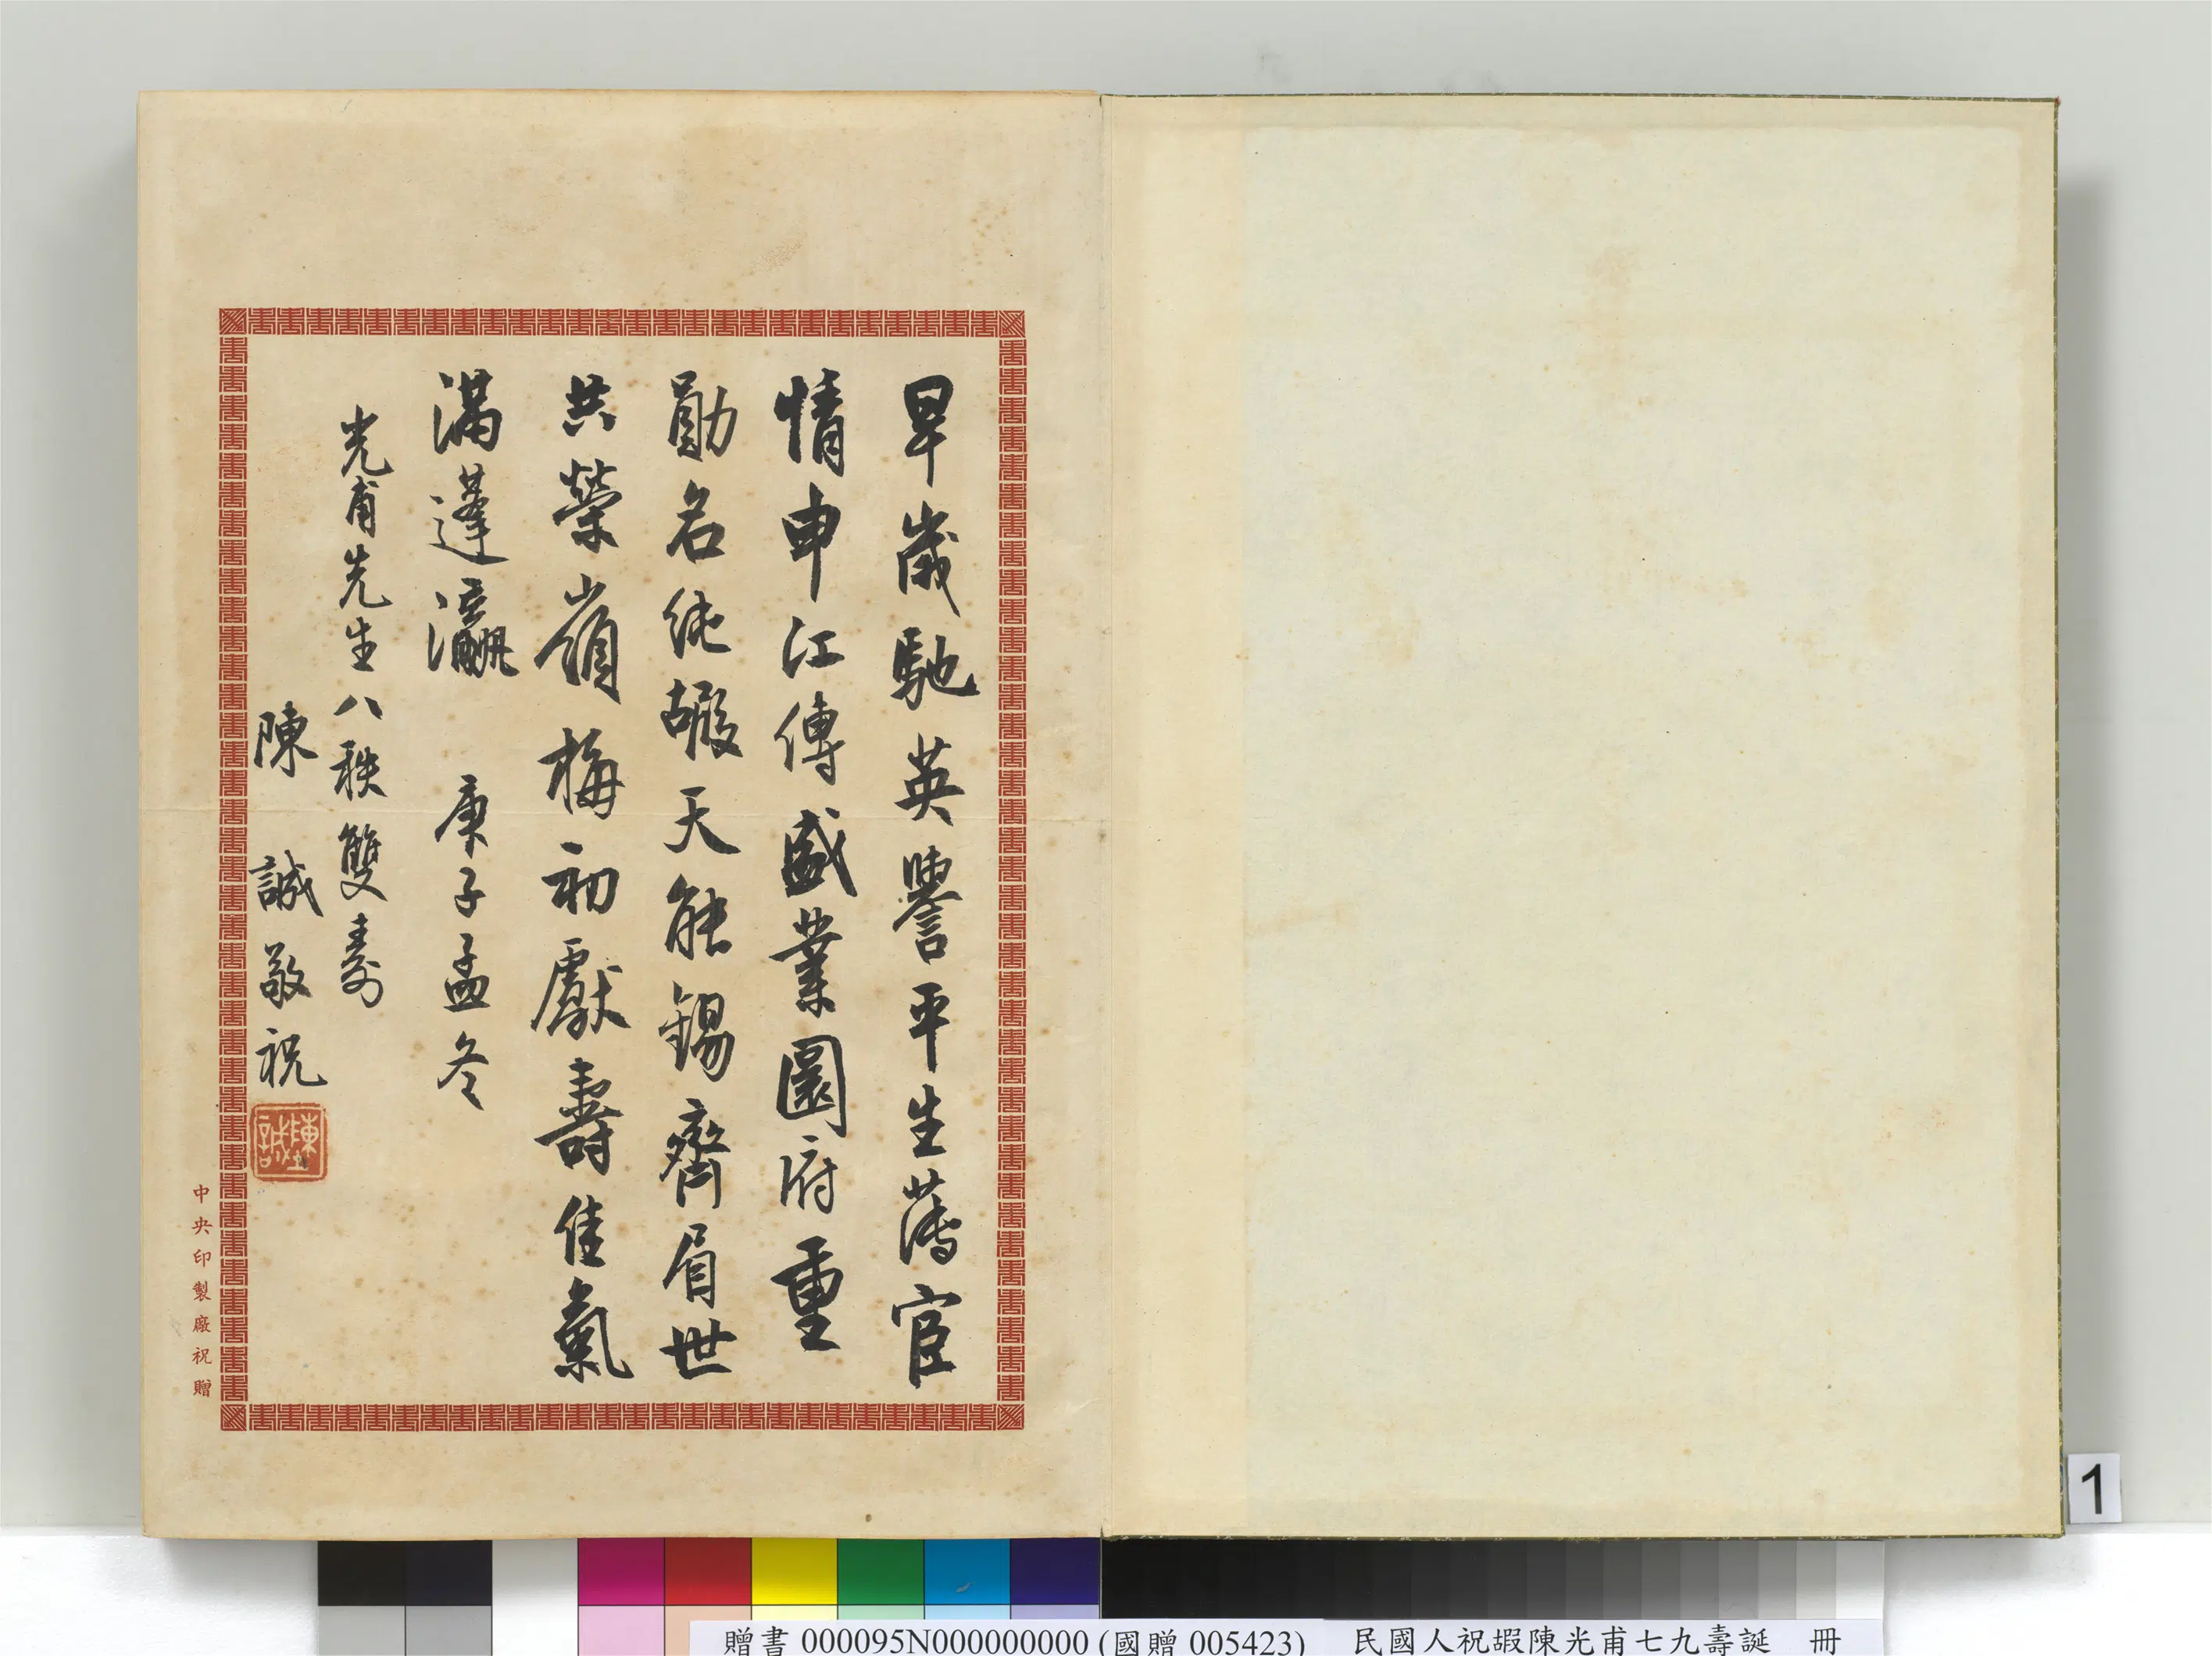 早歲馳英譽平生薄宦
情申江傳盛業園府重
勛名純嘏天能錫齊眉世
共榮嶺梅初獻壽佳氣
滿蓬瀛　庚子孟冬
光甫先生八秩雙壽
陳　誠敬祝
陳誠
中央印製廠祝贈
1
贈書 000095N000000000 (國贈 005423)　民國人祝嘏陳光甫七九壽誕　冊